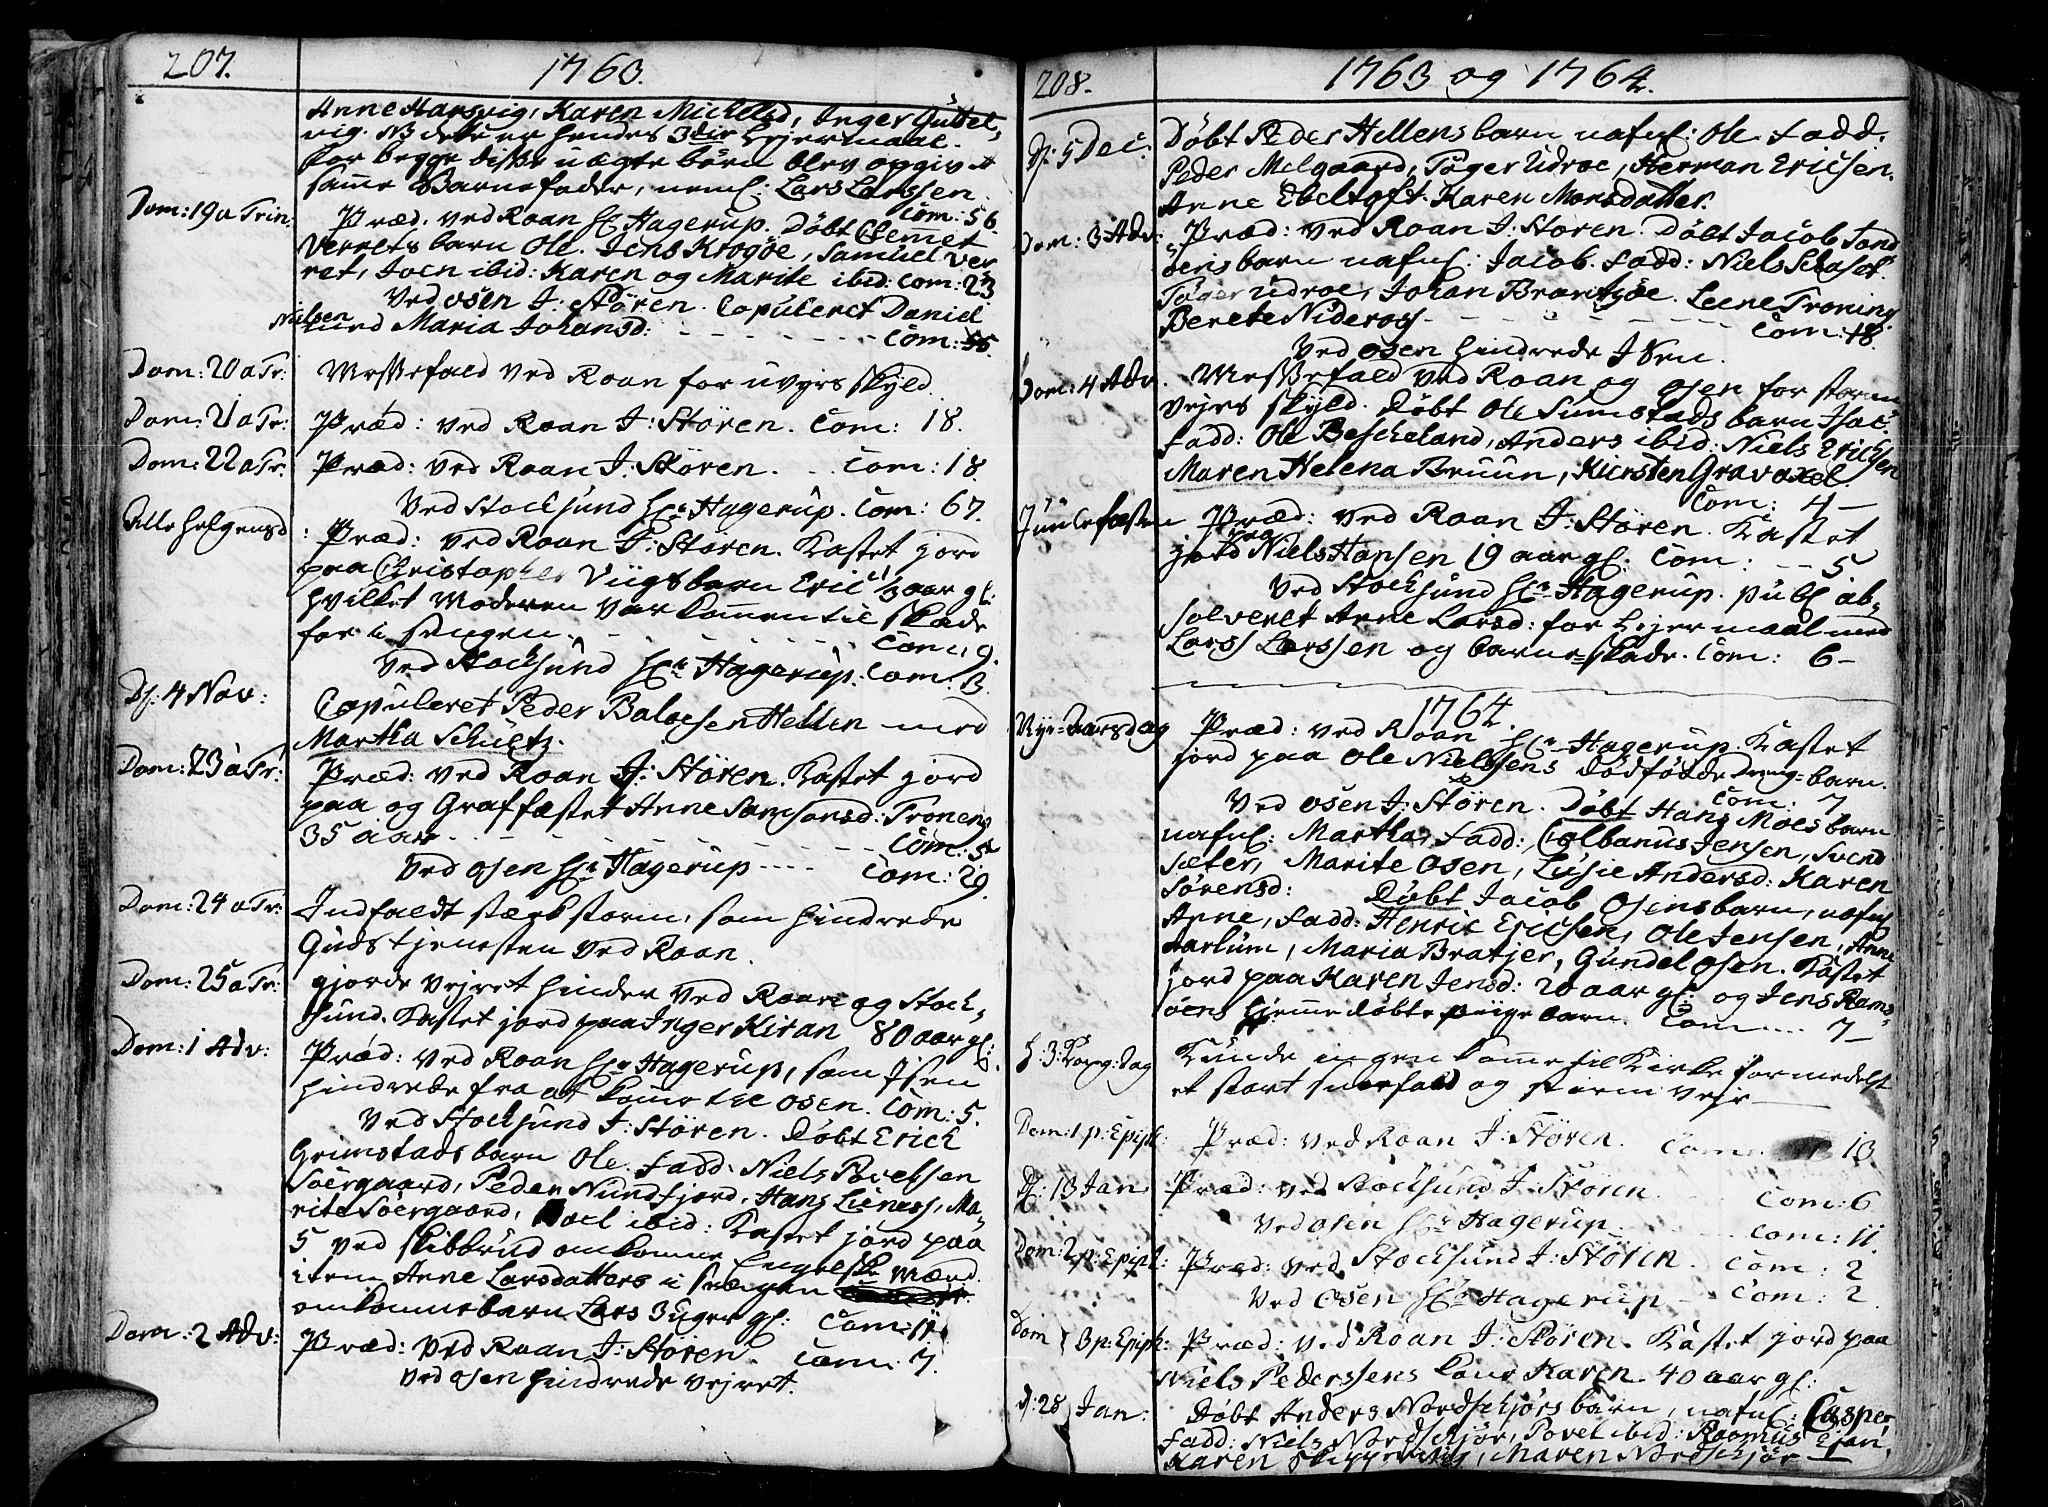 207. 1763.
Anne Harsvig, Karen Michelsd, Inger Guttel-
vig. NB dette er hendes 3die Lejermaal.
for begge disse uægte börn blev opgivet
samme Barnefader, neml: Lars Larssen.
Com: 56.
Dom: 19 a Trin: Præd. ved Roan Hr Hagerup. Döbt Clemmet
Verrets barn Ole. Jens Krogöe, Samuel Ver
ret, Joen ibid: Karen og Marite ibid: Com: 23
Ved Osen J: Stören. Copuleret Daniel
Nielsen und Maria Johansd: Com: 55.
Dom: 20 a Tr: Messefald ved Roan for uvejrs skyld.
Dom: 21 a Tr: Præd: ved Roan J: Stören. Com: 18.
Dom: 22 a Tr. Præd: ved Roan J: Stören. Com: 18.
Ved Stocksund Hr Hagerup. Com: 67.
Alle Helgensd: Præd: ved Roan J: Stören. Kastet jord
paa Christopher Viigs barn Eric 1/3 aar gl:
hvilket Moderen var kommen til skade
for i sengen. Com: 9.
Ved Stocksund Hr Hagerup. Com: 13.
D: 4 Nov: Copuleret Peder Baloesen Hellen med
Martha Schultz.
Dom: 23 a Tr: Præd: ved Roan J: Stören. Kastet jord
paa og Graffæstet Anne Samsonsd: Tronens
35 aar Com: 5
Ved Osen Hr Hagerup Com: 29.
Dom: 24 a Tr: Indfaldt stærk storm, som hindrede
Gudstjenesten ved Roan.
Dom: 25 a Tr: gjorde vejret hinder ved Roan og Stock-
sund. Kastet jord paa Inger Kiran 80 aar gl:
Dom: 1 Adv: Præd: ved Roan Hr Hagerup, som Isen
hindrede fra at komme til Osen. Com: 5.
Ved Stocksund J: Stören. Döbt Erich
Grimstads barn Ole. Fadd: Niels Povelsen
Söergaard, Peder Nundfjord, Hans Lienes, Ma-
rite Söergaard, ibid: Kastet jord paa
5 ved skibbrud omkomne Engelske Mænd.
item Anne Larsdatters i sengen
omkomne barn Lars 3 uger gl: Com: 11.
Dom: 2 Adv: Præd: ved Roan J: Stören. Com: 7.
Ved Osen hindrede vejret.
208. 1763 og 1764.
D: 5 Dec: Döbt Peder Hellens barn nafnl: Ole. Fadd:
Peder Melgaard, Töger Udroe, Herman Ericsen.
Anne Ebeltoft. Karen Monsdatter.
Dom: 3 Adv: Præd: ved Roan J: Stören. Döbt Jacob Tond
öens barn nafnl: Jacob. Fadd: Niels Schaset.
Töger Udroe, Johan Brandsöe. Leene Troning
Berete Nideros Com: 18.
Ved Osen hindrede Isen.
Dom: 4 Adv. Messefald ved Roan og Osen for storm
vejrs skyld. Döbt Ole Sumstads barn Isac.
Fadd: Ole Bescheland, Anders ibid: Niels Erichsen
Maren Helena Bruun, Kirsten Gravaxel.
Com: 4
Juulefæsten Præd: ved Roan J: Stören. Kastet
jord paa Niels Hansen 19 aar gl: Com: 5
Ved Stocksund Hr Hagerup. publ: ab-
solveret Anne Larsd: for Lejermaal med
Lars Larssen og barne skade. Com: 6
1764.
Nye-Aarsdag Præd: ved Roan Hr Hagerup. Kastet
jord paa Ole Nielssens dödfödde Drenge-barn.
Com: 7
Ved Osen J: Stören. Döbt Hans Moes barn
nafnl: Martha, Fadd: Colbanus Jensen, Svend
Sæter, Marite Osen, Lusie Andersd: Karen
Sörensd: Döbt Jacob Osens barn, nafnl
Anne, Fadd: Henric Ericsen, Ole Jensen, Anne
aarlum, Maria Bratjer, Gundel Osen. Kastet
jord paa Karen Jensd: 20 aar gl: og Jens Rams-
öens hjemmedöbte pige barn. Com 7
H 3: Kong: Dag Kunde ingen komme til Kirke formedelst
et stort sneefald og storm vejr
Dom: 1 p: Epiph: Præd: ved Roan J: Stören. Com: 13
D: 13 Jan Præd: ved Stocksund J: Stören. Com: 6
Ved Osen Hr Hagerup. Com: 11.
Dom: 2 p: Epiph: Præd: ved Stocksund J: Stören. Com: 2
Ved Osen Hr Hagerup Com: 2.
Dom 3 p: Epiph: Præd: ved Roan J: Stören. Kastet jord paa
Niels Pederssens kone Karen 40 aar gl:
D: 28 Jan: Döbt Anders Nordschjörs barn, nafnl: Casper
Fadd: Niels Nordschjör, Povel ibid: Rasmus
Karen, Maren Nordschjör